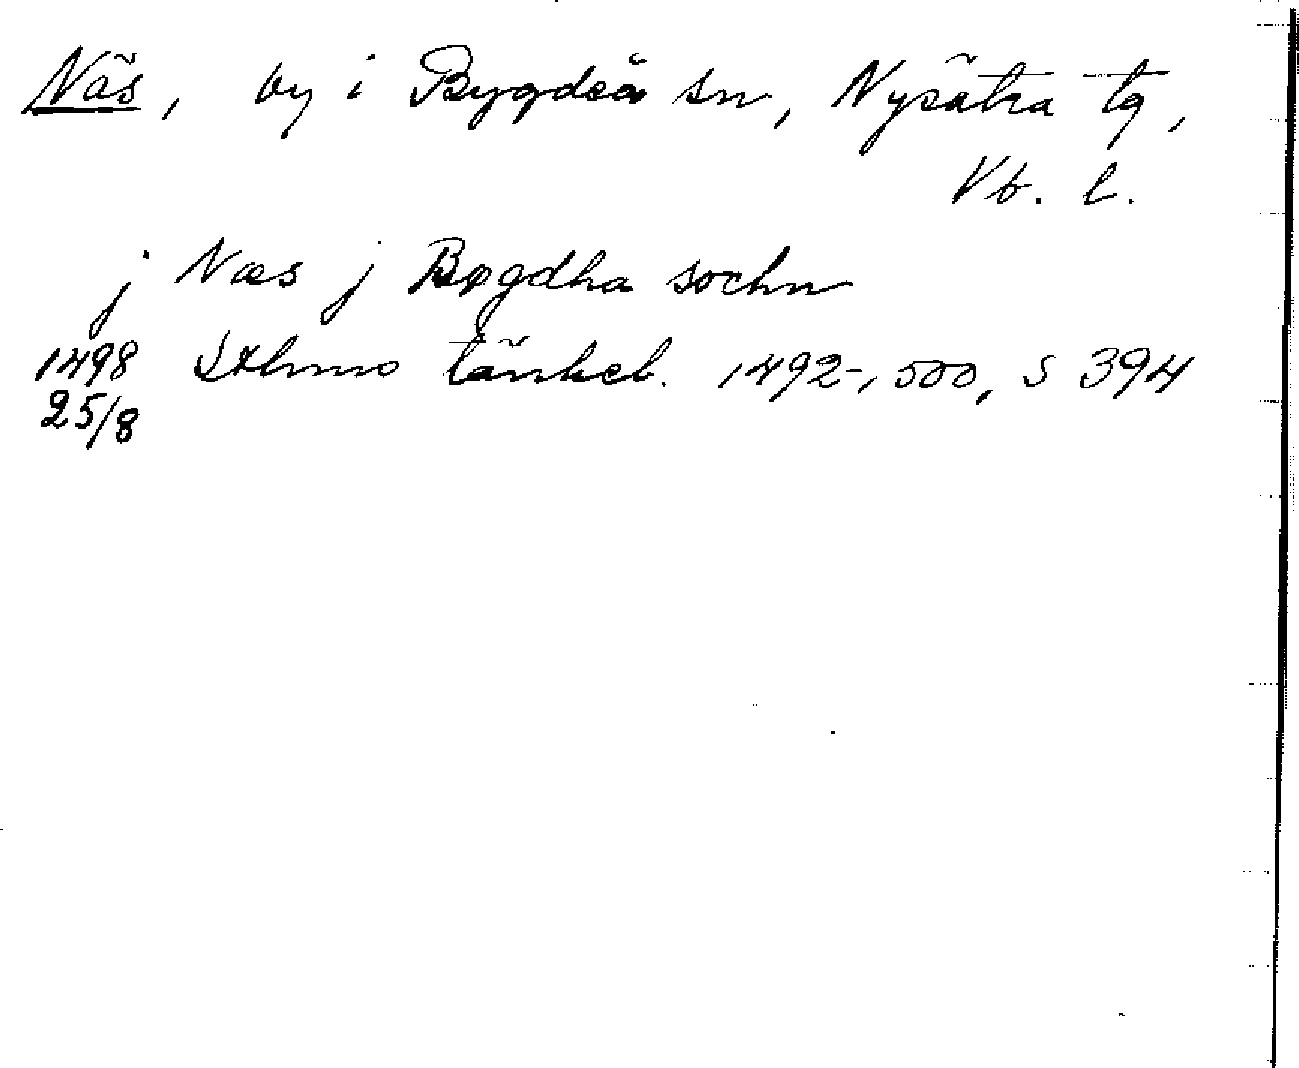 Näs, by i Bygdeå sn, Nysätra tg,
Vb. l.
j Næs j Bøgdha sochn
1498 Sthmo tänkeb. 1492-1500, s 394
25/8